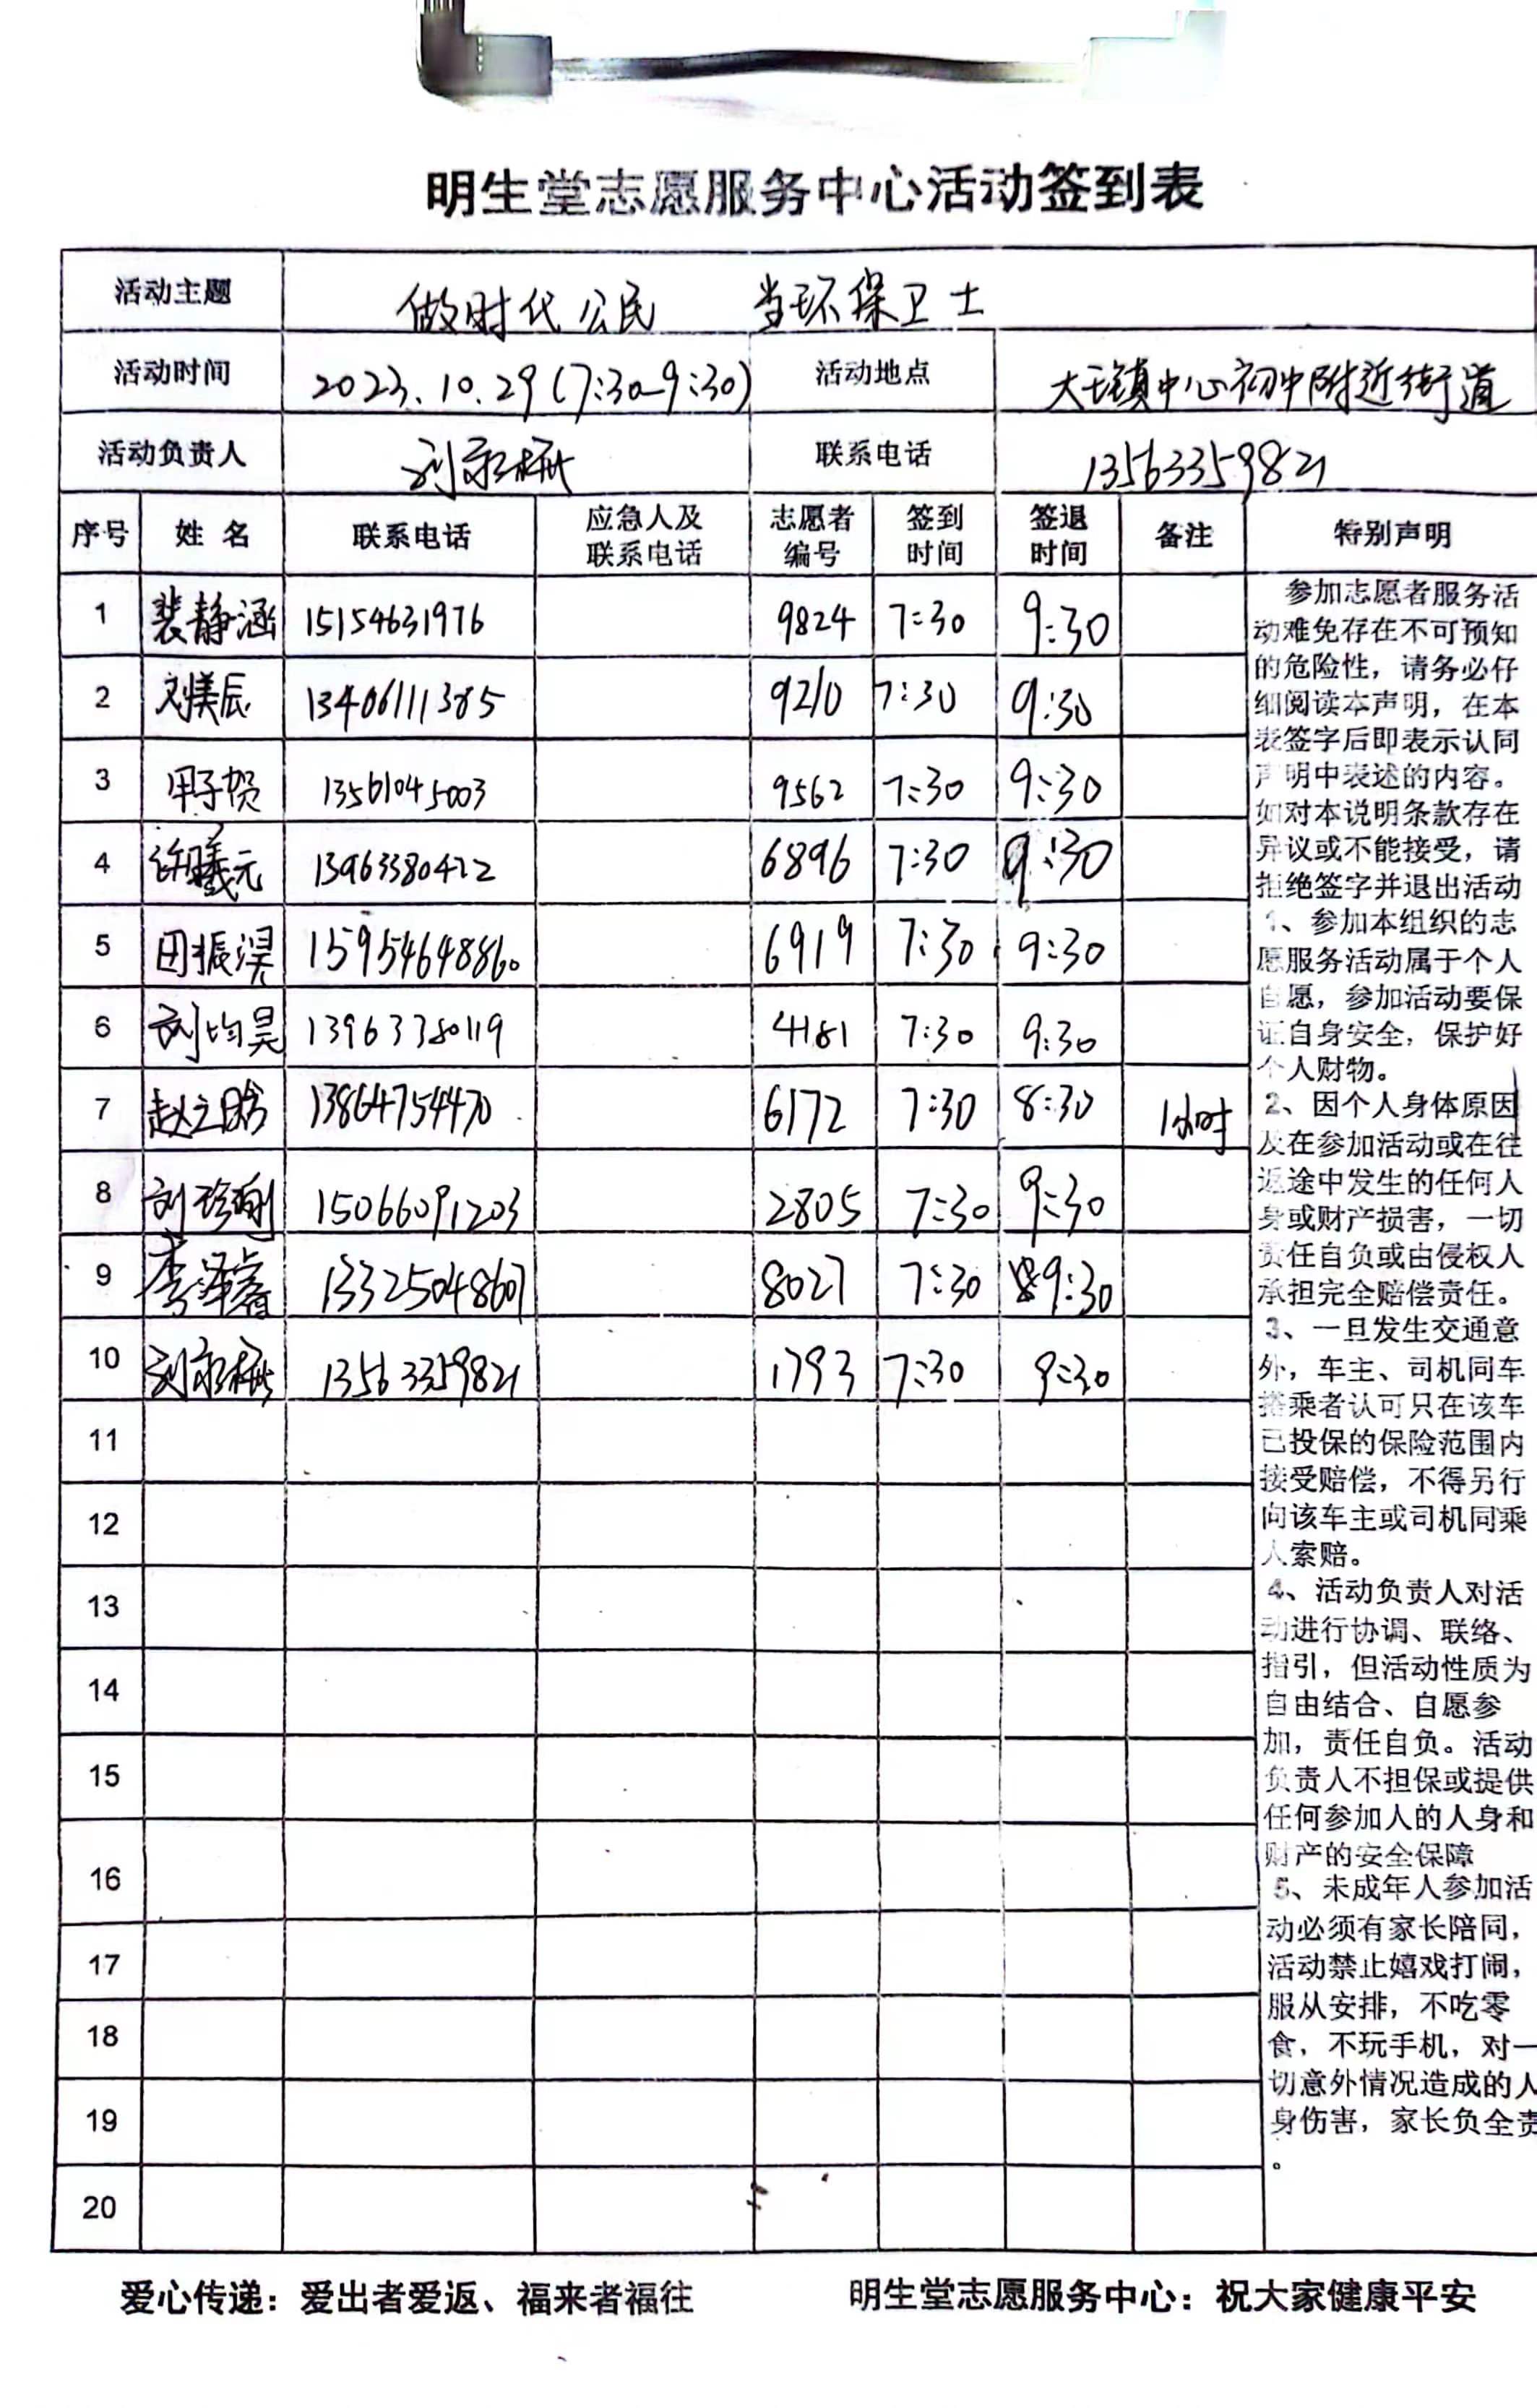 明生堂志愿服务中心活动签到表
活动主题 做时代公民 当环保卫士
活动时间 2023.10.29(7:30-9:30) 活动地点 大王镇中心初中附近街道
活动负责人 刘 联系电话 13563359821
序号 姓名 联系电话 应急人及联系电话 志愿者编号 签到时间 签退时间 备注 特别声明
1 裴静涵 15154631976 9824 7:30 9:30
2 刘美辰 13406111385 9210 7:30 9:30
3 子贺 13561045003 9562 7:30 9:30
4 许曦元 13963380412 6896 7:30 9:30
5 田振淏 15954648860 6919 7:30 9:30
6 刘均昊 13963380119 4181 7:30 9:30
7 赵立晗 13864754470 6172 7:30 8:30 1小时
8 刘珍 15066091203 2805 7:30 9:30
9 李泽睿 13325048607 8027 7:30 9:30
10 刘 13563359821 1793 7:30 9:30
11
12
13
14
15
16
17
18
19
20
参加志愿者服务活
动难免存在不可预知
的危险性，请务必仔
细阅读本声明，在本
表签字后即表示认同
声明中表述的内容。
如对本说明条款存在
异议或不能接受，请
拒绝签字并退出活动
1、参加本组织的志
愿服务活动属于个人
自愿，参加活动要保
证自身安全，保护好
个人财物。
2、因个人身体原因
及在参加活动或在往
返途中发生的任何人
身或财产损害，一切
责任自负或由侵权人
承担完全赔偿责任。
3、一旦发生交通意
外，车主、司机同车
搭乘者认可只在该车
已投保的保险范围内
接受赔偿，不得另行
向该车主或司机同乘
人索赔。
4、活动负责人对活
动进行协调、联络、
指引，但活动性质为
自由结合、自愿参
加，责任自负。活动
负责人不担保或提供
任何参加人的人身和
财产的安全保障
5、未成年人参加活
动必须有家长陪同，
活动禁止嬉戏打闹，
服从安排，不吃零
食，不玩手机，对一
切意外情况造成的人
身伤害，家长负全责
。
爱心传递：爱出者爱返、福来者福往 明生堂志愿服务中心：祝大家健康平安